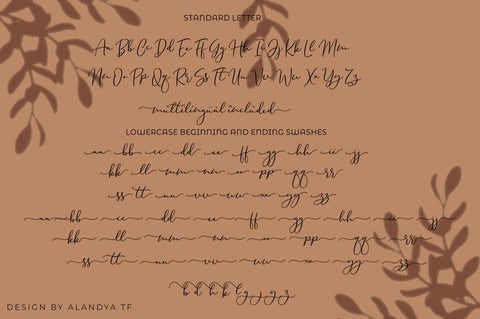 STANDARD LETTER
Aa Bb Cc Dd Ee Ff Gg Hh Ii Jj Kk Ll Mm
Nn Oo Pp Qq Rr Ss Tt Uu Vv Ww Xx Yy Zz
multilingual included
LOWERCASE BEGINNING AND ENDING SWASHES
aa bb cc dd ee ff gg hh ii jj
kk ll mm nn oo pp qq rr
ss tt uu vv ww xx yy zz
aa bb cc dd ee ff gg hh ii jj
kk ll mm nn oo pp qq rr
ss tt uu vv ww xx yy zz
b d h k l g j y z
DESIGN BY ALANDYA TF